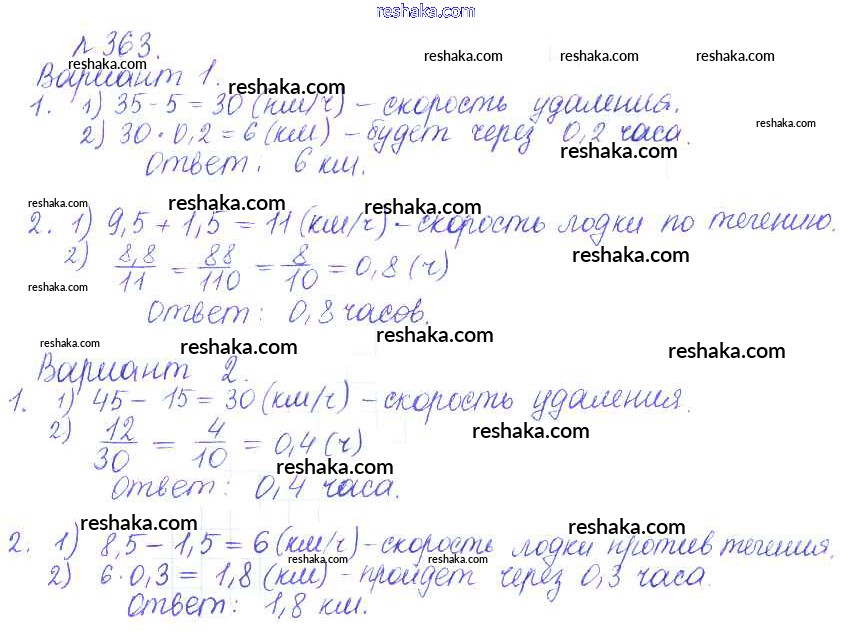 reshaka.com
№ 363.
reshaka.com reshaka.com reshaka.com
reshaka.com
Вариант 1.
reshaka.com
1. 1) 35 - 5 = 30 (км/ч) - скорость удаления.
reshaka.com
2) 30 · 0,2 = 6 (км) - будет через 0,2 часа.
reshaka.com
Ответ: 6 км.
reshaka.com reshaka.com reshaka.com
2. 1) 9,5 + 1,5 = 11 (км/ч) - скорость лодки по течению.
reshaka.com
2) 8,8/11 = 88/110 = 8/10 = 0,8 (ч)
reshaka.com
Ответ: 0,8 часов.
reshaka.com reshaka.com reshaka.com reshaka.com
Вариант 2.
1. 1) 45 - 15 = 30 (км/ч) - скорость удаления.
reshaka.com
2) 12/30 = 4/10 = 0,4 (ч)
reshaka.com
Ответ: 0,4 часа.
reshaka.com reshaka.com
2. 1) 8,5 - 1,5 = 6 (км/ч) - скорость лодки против течения.
reshaka.com reshaka.com
2) 6 · 0,3 = 1,8 (км) - пройдет через 0,3 часа.
Ответ: 1,8 км.